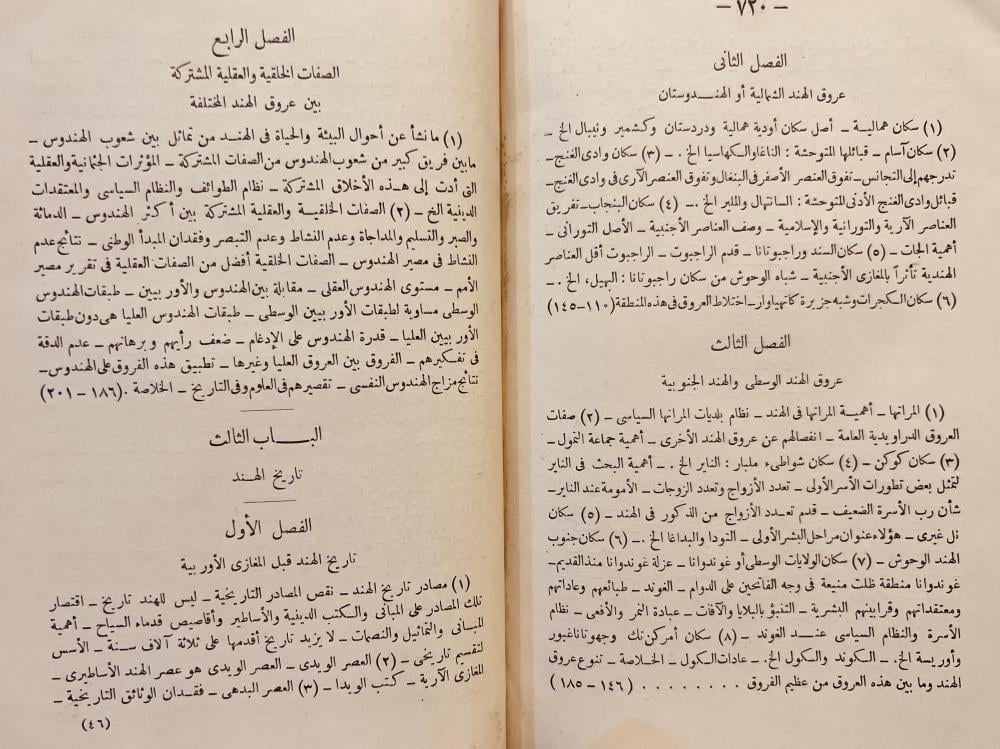 — ٧٢٠ —
الفصل الثانى
عروق الهند الشمالية أو الهندوستان
(١) سكان همالية ــ أصل سكان أودية همالية ودردستان وكشمير ونيبال الخ ــ
(٢) سكان آسام ــ قبائلها المتوحشة : الناغا والكهاسيا الخ . ــ (٣) سكان وادى الغنج ــ
تدرجهم إلى التجانس ــ تفوق العنصر الأصفر فى البنغال وتفوق العنصر الآرى فى وادى الغنج ــ
قبائل وادى الغنج الأدنى المتوحشة : السانتهال والملير الخ . ــ (٤) سكان البنجاب ــ تفريق
العناصر الآرية والتورانية والإسلامية ــ وصف العناصر الأجنبية ــ الأصل التورانى ــ
أهمية الجات ــ (٥) سكان السند وراجبوتانا ــ قدم الراجبوت ــ الراجبوت أقل العناصر
الهندية تأثراً بالمغازى الأجنبية ــ شباه الوحوش من سكان راجبوتانا : البهيل ، الخ . ــ
(٦) سكان الكجرات وشبه جزيرة كاتهياوار ــ اختلاط العروق فى هذه المنطقة (١١٠ــ١٤٥)
الفصل الثالث
عروق الهند الوسطى والهند الجنوبية
(١) المراتها ــ أهمية المراتها فى الهند ــ نظام بلديات المراتها السياسى ــ (٢) صفات
العروق الدراويدية العامة ــ انفصالهم عن عروق الهند الأخرى ــ أهمية جماعة التمول ــ
(٣) سكان كوكن ــ (٤) سكان شواطىء مليبار : الناير الخ . ــ أهمية البحث فى الناير
لتمثل بعض تطورات الأسر الأولى ــ تعدد الأزواج وتعدد الزوجات ــ الأمومة عند الناير ــ
شأن رب الأسرة الضعيف ــ قدم تعدد الأزواج من الذكور فى الهند ــ (٥) سكان
نل غيرى ــ هؤلاء عنوان مراحل البشر الأولى ــ التودا والبداغا الخ . ــ (٦) سكان جنوب
الهند الوحوش ــ (٧) سكان الولايات الوسطى أو غوندوانا ــ عزلة غوندوانا منذ القديم ــ
غوندوانا منطقة ظلت منيعة فى وجه الفاتحين على الدوام ــ الغوند ــ طبائعهم وعاداتهم
ومعتقداتهم وقرابينهم البشرية ــ التنبؤ بالبلايا والآفات ــ عبادة النمر والأفعى ــ نظام
الأسرة والنظام السياسى عند الغوند ــ (٨) سكان أمركن تك وجهوتا ناغبور
وأوريسة الخ . ــ الكوند والكول الخ . ــ عادات الكول ــ الخلاصة ــ تنوع عروق
الهند وما بين هذه العروق من عظيم الفروق . . . . . . . . (١٤٦ ــ ١٨٥)
الفصل الرابع
الصفات الخلقية والعقلية المشتركة
بين عروق الهند المختلفة
(١) ما نشأ عن أحوال البيئة والحياة فى الهند من تماثل بين شعوب الهندوس ــ
ما بين فريق كبير من شعوب الهندوس من الصفات المشتركة ــ المؤثرات الجثمانية والعقلية
التى أدت إلى هذه الأخلاق المشتركة ــ نظام الطوائف والنظام السياسى والمعتقدات
الدينية الخ ــ (٢) الصفات الخلقية والعقلية المشتركة بين أكثر الهندوس ــ الدماثة
والصبر والتسليم والمداجاة وعدم النشاط وعدم التبصر وفقدان المبدأ الوطنى ــ نتائج عدم
النشاط فى مصير الهندوس ــ الصفات الخلقية أفضل من الصفات العقلية فى تقرير مصير
الأمم ــ مستوى الهندوس العقلى ــ مقابلة بين الهندوس والأوربيين ــ طبقات الهندوس
الوسطى مساوية لطبقات الأوربيين الوسطى ــ طبقات الهندوس العليا هى دون طبقات
الأوربيين العليا ــ قدرة الهندوس على الإدغام ــ ضعف رأيهم وبرهانهم ــ عدم الدقة
فى تفكيرهم ــ الفروق بين العروق العليا وغيرها ــ تطبيق هذه الفروق على الهندوس ــ
نتائج مزاج الهندوس النفسى ــ تقصيرهم فى العلوم وفى التاريخ ــ الخلاصة . (١٨٦ ــ ٢٠١)
البــاب الثالث
تاريخ الهند
الفصل الأول
تاريخ الهند قبل المغازى الأوربية
(١) مصادر تاريخ الهند ــ نقص المصادر التاريخية ــ ليس للهند تاريخ ــ اقتصار
تلك المصادر على المبانى والكتب الدينية والأساطير وأقاصيص قدماء السياح ــ أهمية
المبانى والتماثيل والنصمات ــ لا يزيد تاريخ أقدمها على ثلاثة آلاف سنة ــ الأسس
لتقسيم تاريخى ــ (٢) العصر الويدى ــ العصر الويدى هو عصر الهند الأساطيرى ــ
المغازى الآرية ــ كتب الويدا ــ (٣) العصر البدهى ــ فقدان الوثائق التاريخية ــ
(٤٦)